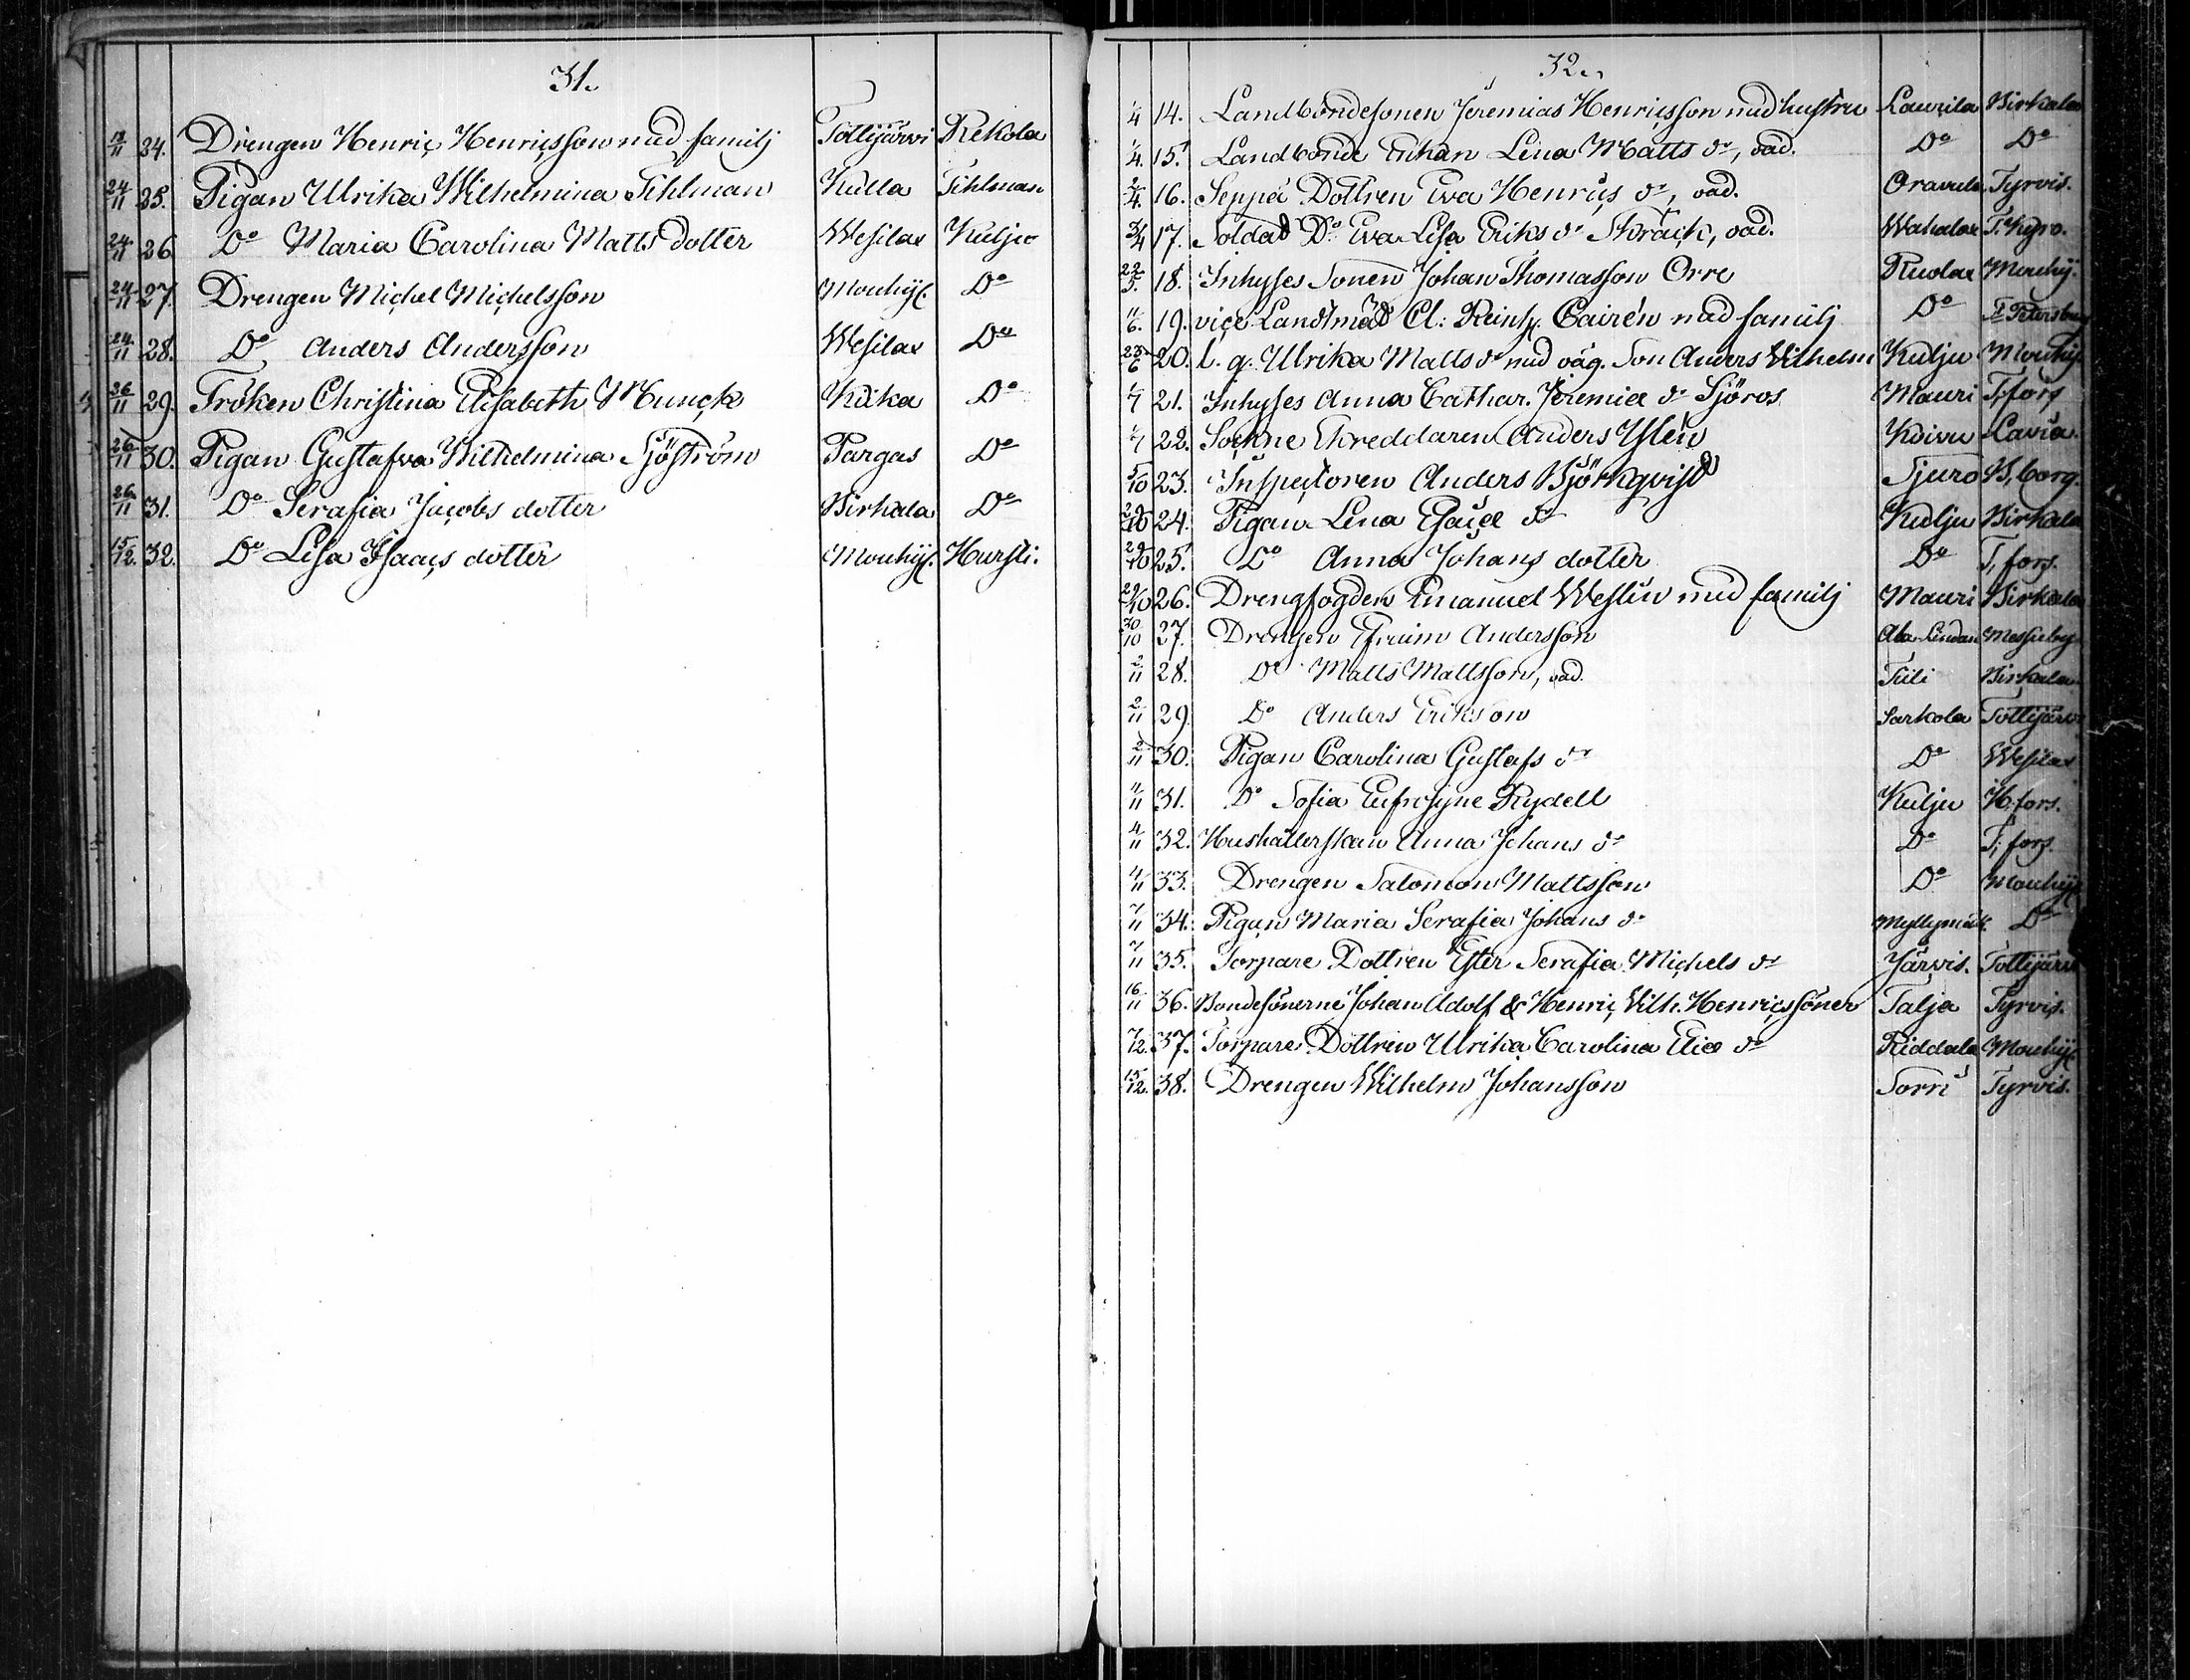 31.
13/11 24. Drengen Henric Henricsson med familj Tottijärvi Rekola
24/11 25. Pigan Ulrika Wilhelmina Tihlman Kulla Tihlman
24/11 26. Do Maria Carolina Matts dotter Wesilax Kulju
24/11 27. Drengen Michel Michelsson Mouhij. Do
24/11 28. Do Anders Andersson Wesilax Do
26/11 29. Fröken Christina Elisabeth Munck Do
26/11 30. Pigan Gustafva Wilhelmina Sjöström Pargas Do
26/11 31. Do Serafia Jacobs dotter Birkala Do
15/12. 32. Do Lisa Isaacs dotter Mouhij. Hursti.
32.
1/4 14. Landbondesonen Jeremias Henricsson med hustru Laurila Birkala
1/4. 15. Landbonde Enkan Lena Matts dr, oäd. Do Do
2/4. 16. Seppä Dottren Eva Henrics dr, oäd. Oravala Tyrvis.
3/4 17. Soldat Do Eva Lisa Eriks dr Sträck, oäd. Wahalax T. Kyro.
22/5. 18. Inhyses Sonen Johan Thomasson Orre Ruolax Mouhij.
11/6. 19. vice Landtmät Cl: Reinh. Cairén med familj Do St Petersburg
23/6 20. l. q. Ulrika Matts dr med oäg. Son Anders Vilhelm Kulju Mouhij.
1/7 21. Inhyses Anna Cathar. Jeremiæ dr Sjöros Mauri T;fors
1/7 22. Sockne Skreddaren Anders Yslén Koivu Lavia
5/10 23. Inspectoren Anders Björkqvist Sjuro B,borg.
29/10 24. Pigan Lena Esaiæ dr Kulju Birkala
29/10 25. Do Anna Johans dotter Do T, fors.
29/10 26. Drengfogden Emanuel Weslin med familj Mauri Birkala
30/10 27. Drengen Efraim Andersson Messuby
2/11 28. Do Matts Mattsson, oäd. Tiili Birkala
2/11 29. Do Anders Eriksson Sarkola Tottijärvi
2/11 30. Pigan Carolina Gustafs dr Do Wesilax
4/11 31. Do Sofia Eufrosyne Rydell Kulju H,fors.
4/11 32. Hushållerskan Anna Johans dr Do T; fors.
4/11 33. Drengen Salomon Mattsson Do Mouhij.
7/11 34. Pigan Maria Serafia Johans dr Myllymäk. Do
7/11 35. Torpare Dottren Ester Serafia Michels dr Järvis. Tottijärvi
16/11 36. Bondesönerne Johan Adolf & Henric Vilh. Henricssöner Talja Tyrvis.
7/12. 37. Torpare Dottren Ulrika Carolina Eliæ dr Riddala Mouhij.
15/12. 38. Drengen Wilhelm Johansson Torri Tyrvis.